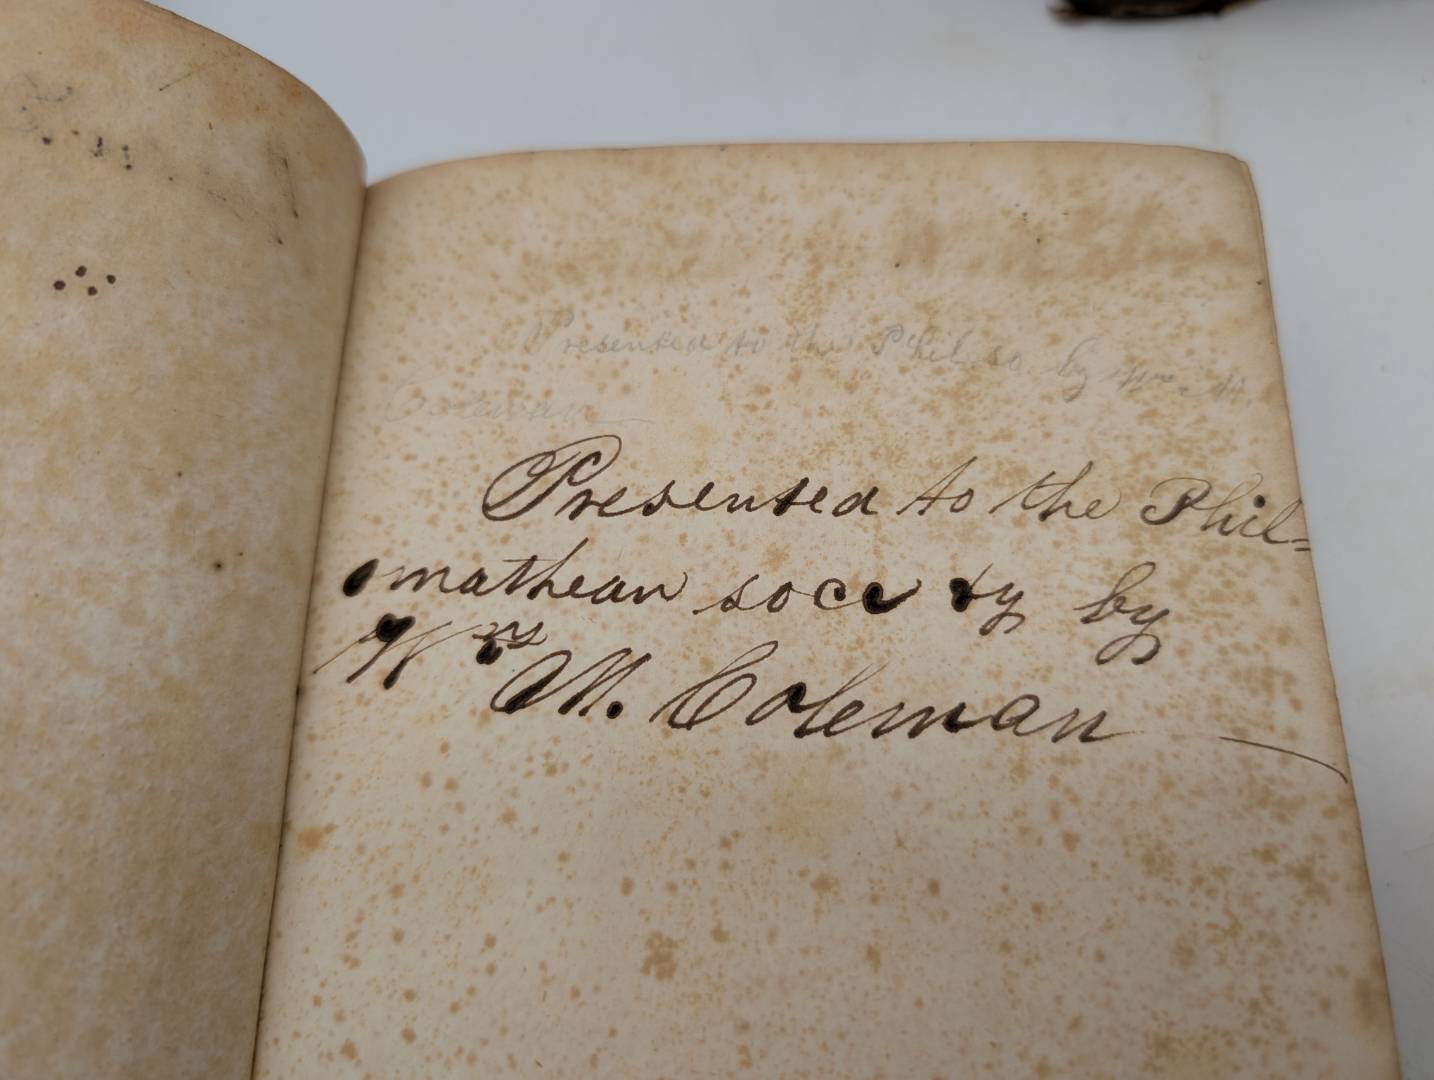 Presented to the Phil. so. by Wm. M.
Coleman
Presented to the Phil=
omathean society by
Wm M. Coleman